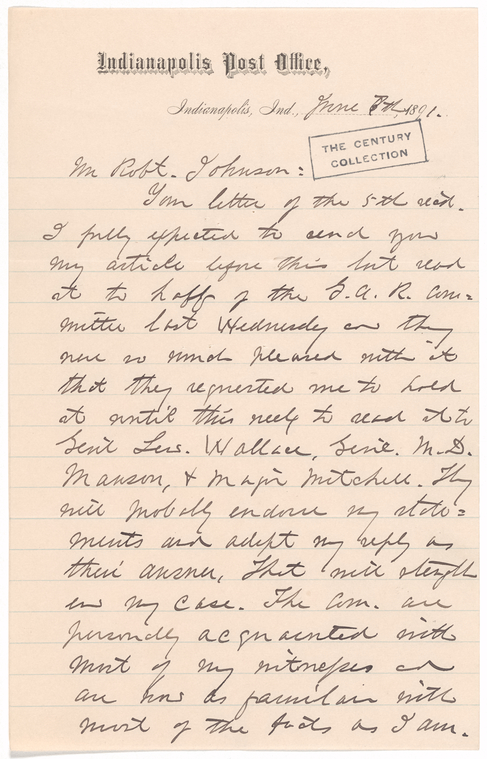 Indianapolis Post Office,
Indianapolis, Ind., June 8th, 1891.
THE CENTURY
COLLECTION
Mr Robt. Johnson:
Your letter of the 5th recd.
I fully expected to send you
my article before this but read
it to half of the G.A.R. Com=
mittee last Wednesday and they
were so much pleased with it
that they requested me to hold
it until this week to read it to
Genl Lew. Wallace, Genl. M.D.
Manson, & Major Mitchell. They
will probably endorse my state=
ments and adopt my reply as
their answer, That will strength
en my case. The Com. are
personally acquainted with
most of my witnesses and
are now as familiar with
most of the facts as I am.